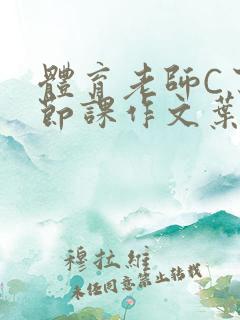 體育老師C
節課作文葉
穆拉維
未任同意禁止转载